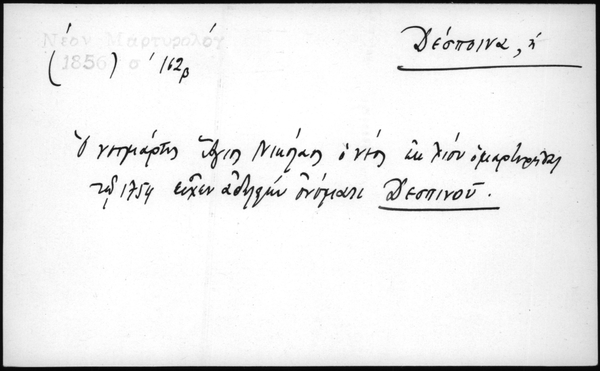 Νέον Μαρτυρολόγ
(1856) σ 162β
Δέσποινα, ἡ
Ὁ νεομάρτυς Ἅγιος Νικόλαος ὁ νέος ἐκ Χίου ὁ μαρτυρήσας
τῷ 1754 εἶχεν ἀδελφὴν ὀνόματι Δεσπινοῦ.